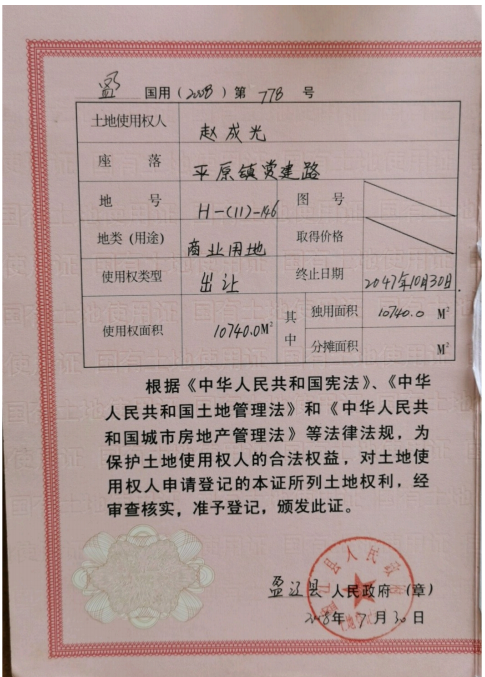 盈 国用（2008）第 778 号
土地使用权人 赵成光
座 落 平原镇党建路
地 号 H-(11)-146 图 号
地类（用途） 商业用地 取得价格
使用权类型 出让 终止日期 2047年10月30日.
使用权面积 10740.0M² 其中 独用面积 10740.0 M²
分摊面积 M²
根据《中华人民共和国宪法》、《中华
人民共和国土地管理法》和《中华人民共
和国城市房地产管理法》等法律法规，为
保护土地使用权人的合法权益，对土地使
用权人申请登记的本证所列土地权利，经
审查核实，准予登记，颁发此证。
盈江县 人民政府（章）
2008年 7 月 30 日
盈江县人民政府